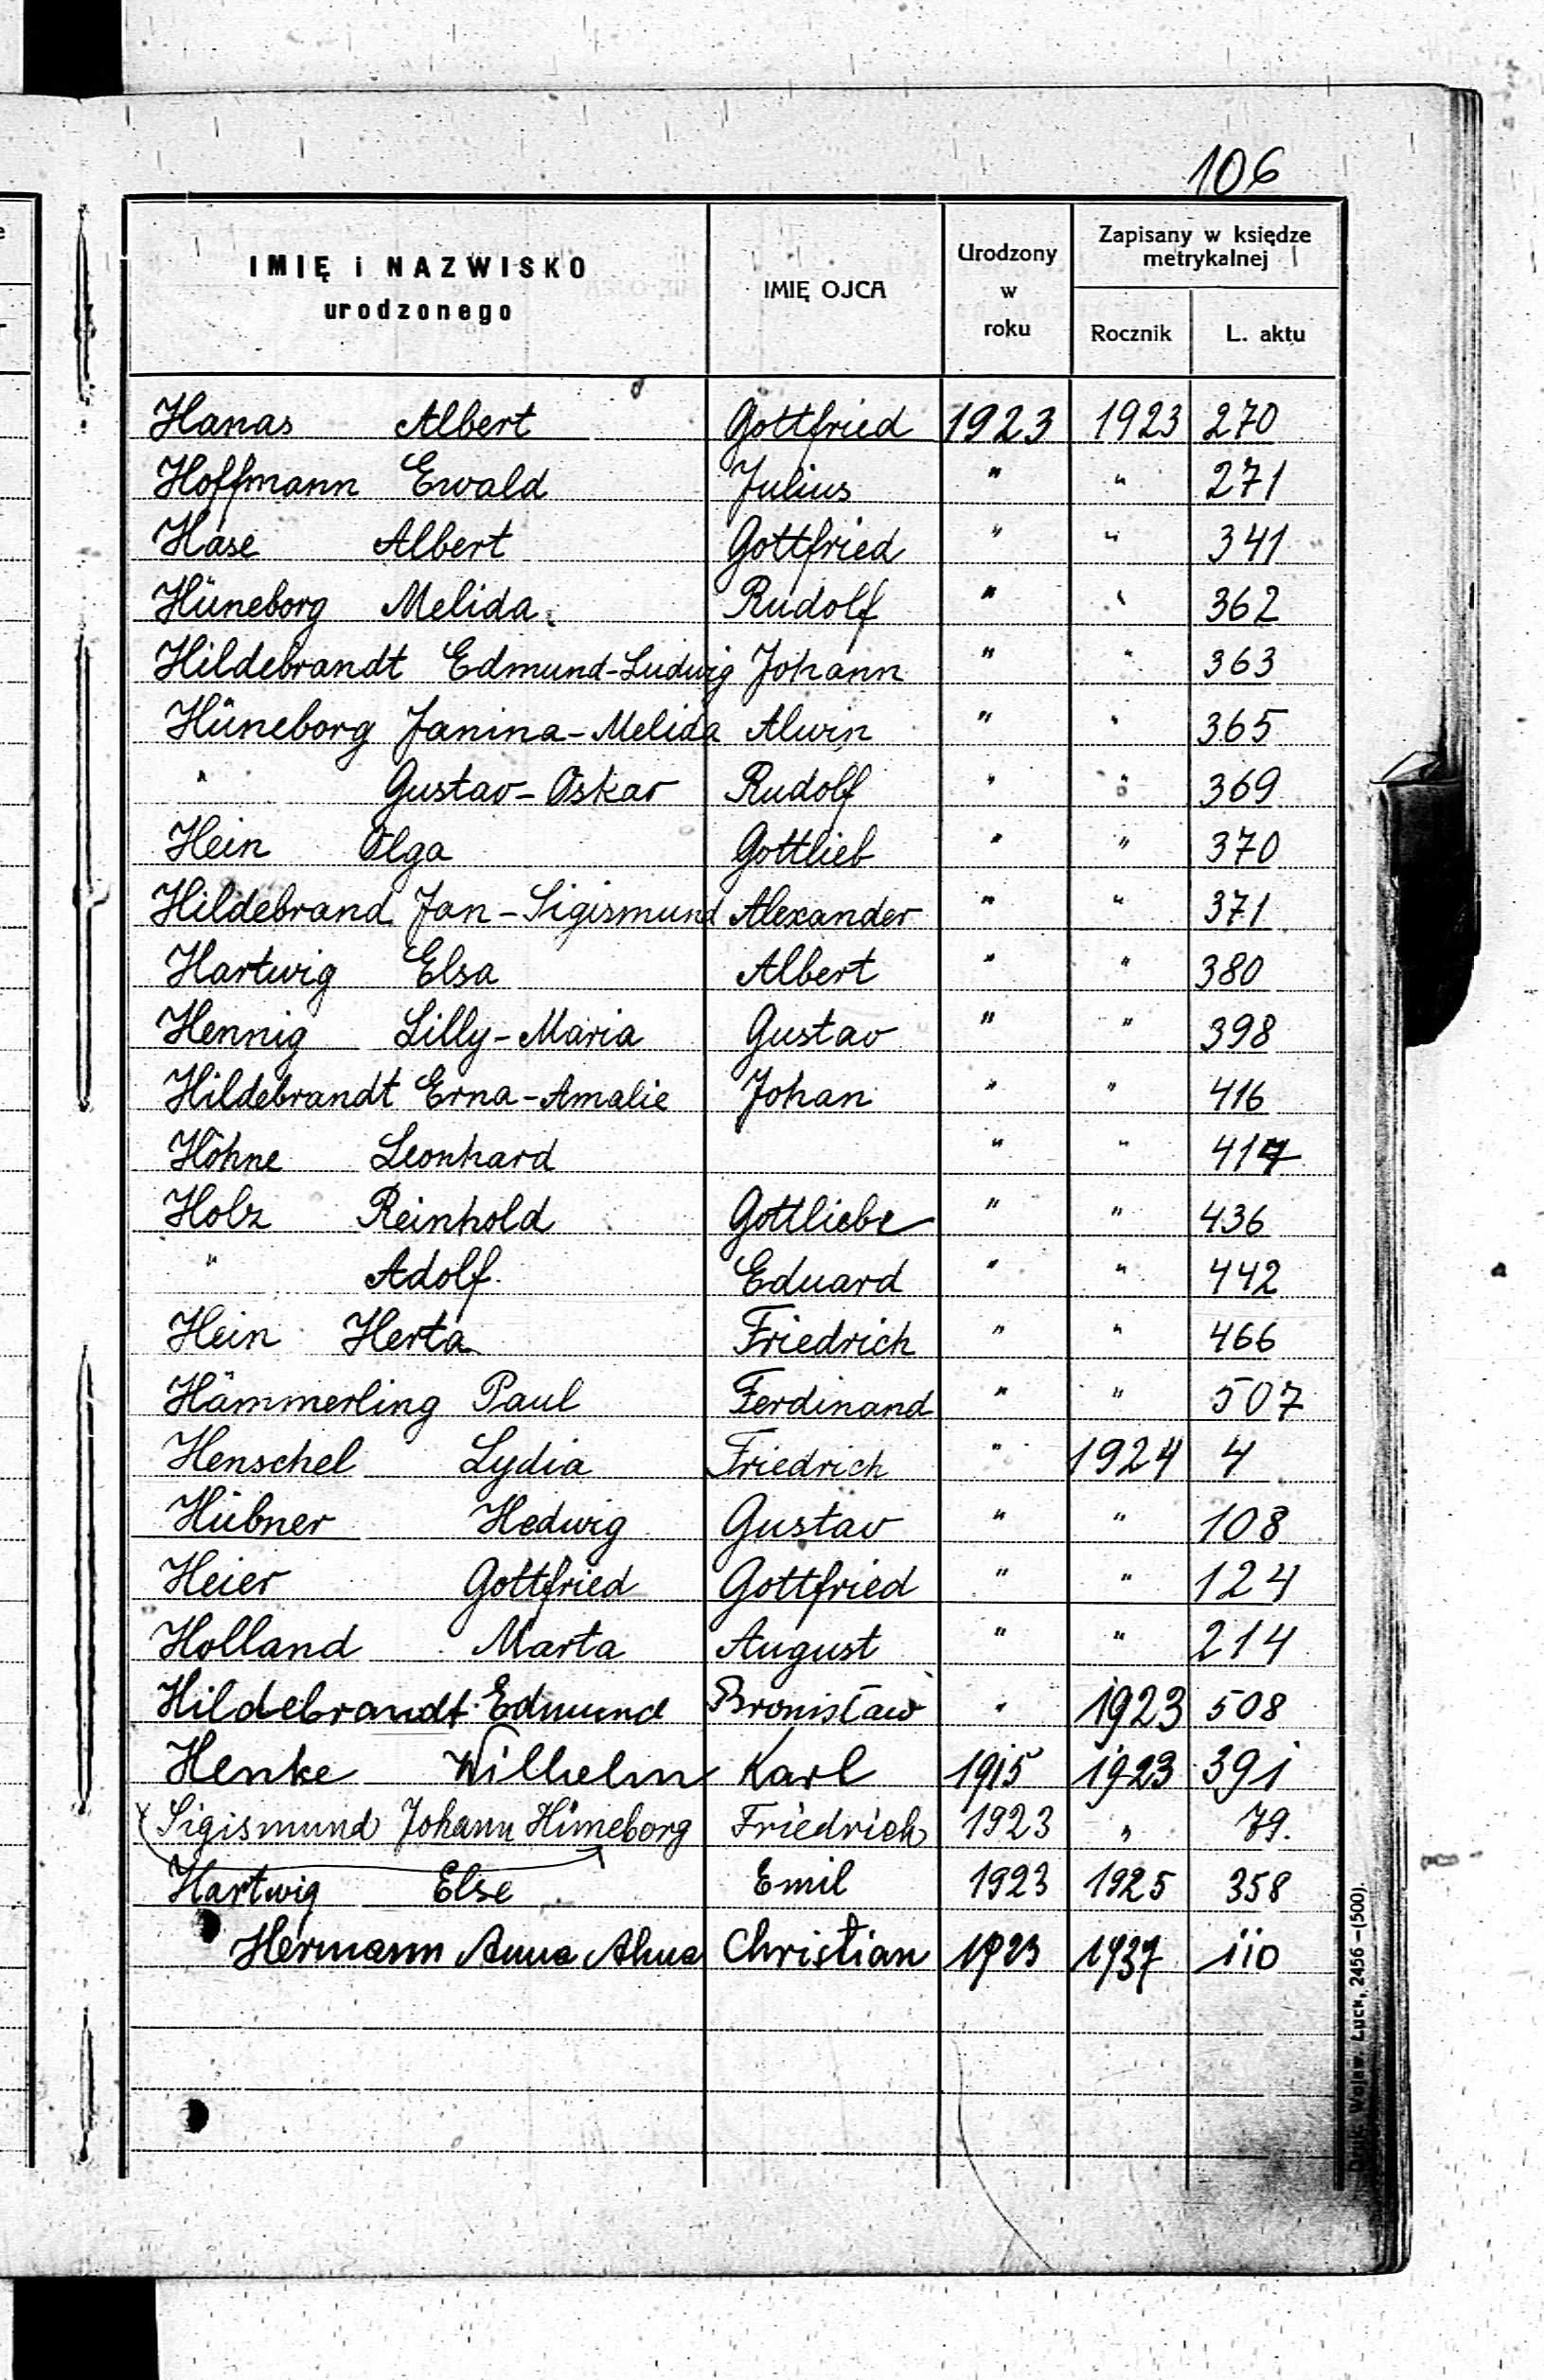 106
IMIĘ i NAZWISKO urodzonego IMIĘ OJCA Urodzony w roku Zapisany w księdze metrykalnej
Rocznik L. aktu
Hanas Albert Gottfried 1923 1923 270
Hoffmann Ewald Julius " " 271
Hase Albert Gottfried " " 341
Hüneborg Melida Rudolf " " 362
Hildebrandt Edmund-Ludwig Johann " " 363
Hüneborg Janina-Melida Alwin " " 365
" Gustav-Oskar Rudolf " " 369
Hein Olga Gottlieb " " 370
Hildebrand Jan-Sigismund Alexander " " 371
Hartwig Elsa Albert " " 380
Hennig Lilly-Maria Gustav " " 398
Hildebrandt Erna-Amalie Johan " " 416
Höhne Leonhard " " 417
Holz Reinhold Gottliebe " " 436
" Adolf Eduard " " 442
Hein Herta Friedrich " " 466
Hämmerling Paul Ferdinand " " 507
Henschel Lydia Friedrich " 1924 4
Hübner Hedwig Gustav " " 108
Heier Gottfried Gottfried " " 124
Holland Marta August " " 214
Hildebrandt Edmund Bronisław " 1923 508
Henke Wilhelm Karl 1915 1923 391
Sigismund Johann Hüneborg Friedrich 1923 " 79.
Hartwig Else Emil 1923 1925 358
Hermann Anna Alma Christian 1923 1937 110
Druk. Wojew. Łuck, 2456-(500).